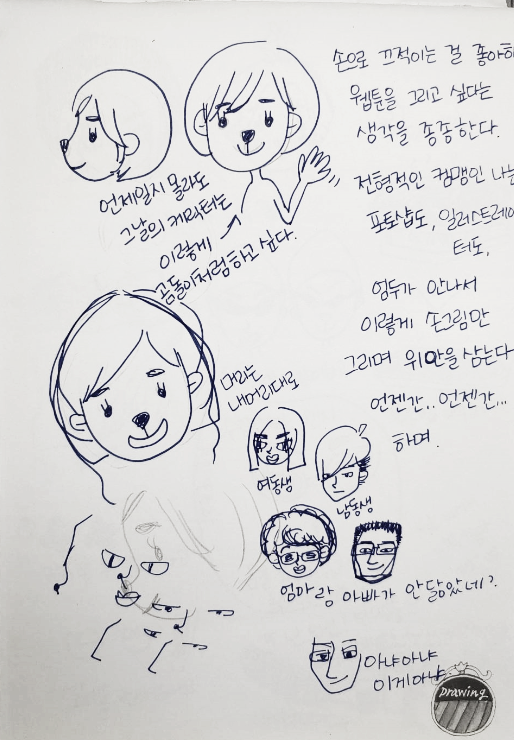 손으로 끄적이는 걸 좋아하
웹툰을 그리고 싶다는
생각을 종종한다.
전형적인 컴맹인 나는
포토샵도, 일러스트레이
터도,
엄두가 안나서
이렇게 손그림만
그리며 위안을 삼는다
언젠간.. 언젠간...
하며.
언제일지 몰라도
그날의 케릭터는
이렇게
곰돌이처럼 하고 싶다.
머리는
내머리대로
여동생
남동생
엄마랑 아빠가 안닮았네?
아냐아냐
이게아냐
Drawing